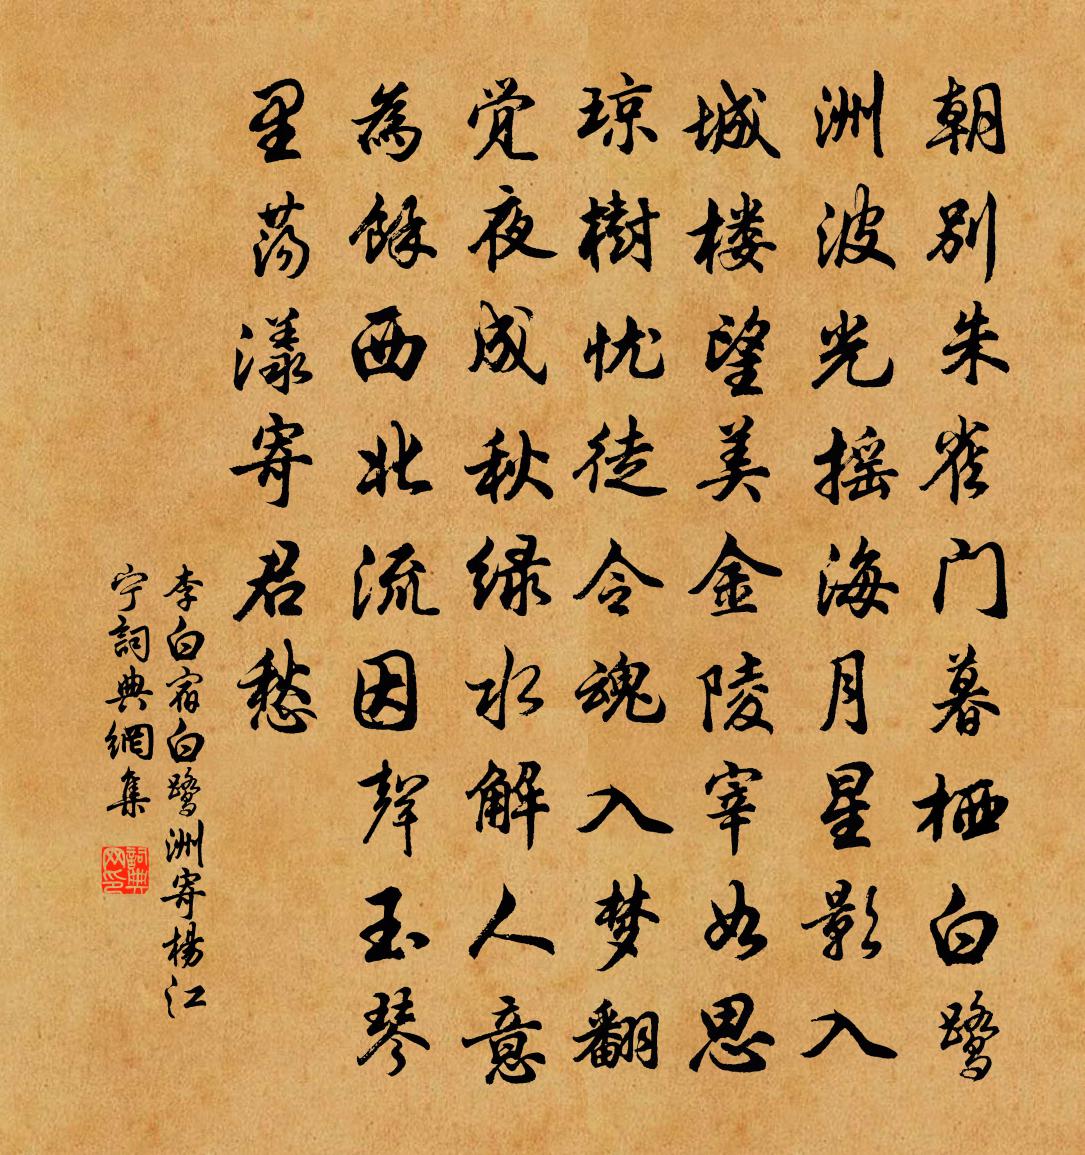 朝别朱雀门暮栖白鹭
洲波光摇海月星影入
城楼望美金陵宰如思
琼樹忧徒令魂入梦翻
觉夜成秋绿水解人意
為餘西北流因聲玉琴
里荡漾寄君愁
李白宿白鹭洲寄楊江
宁詞典網集
詞典
网印